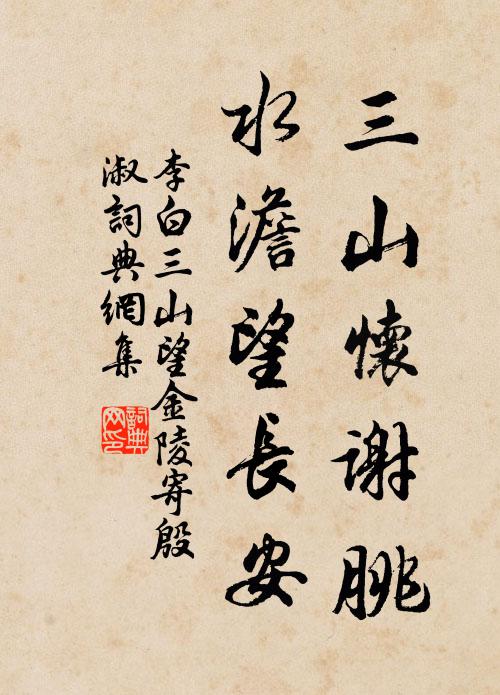 三山懷謝朓
水澹望長安
李白三山望金陵寄殷
淑詞典網集
詞典網印